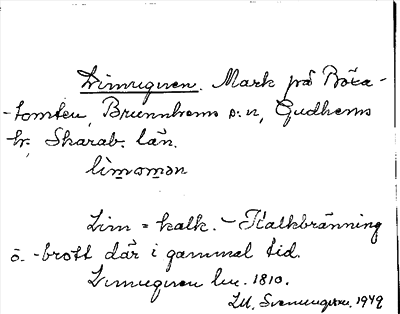 Limugnen. Mark på Böxa-
-tomten, Brunnhems s:n, Gudhems
hr, Skarab. län.
lìmomən
Lim = kalk. – Kalkbränning
o. -brott där i gammal tid.
Limugnen lm. 1810.
1949